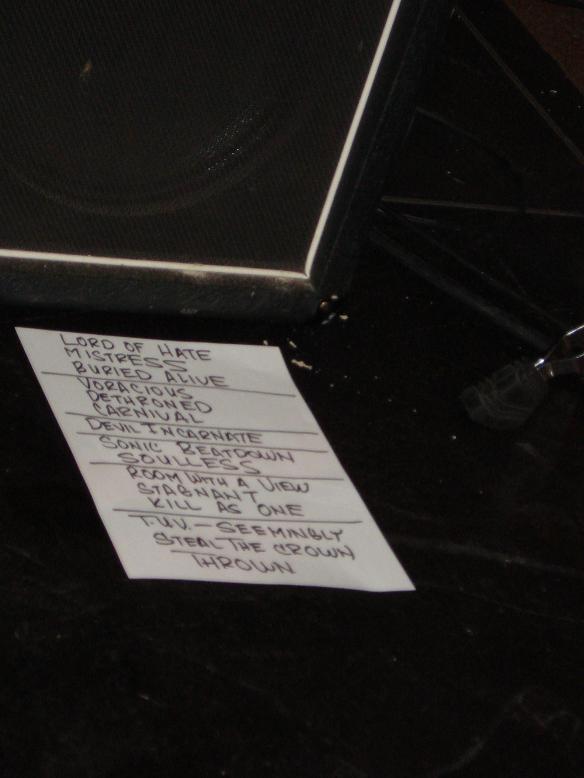 LORD OF HATE
MISTRESS
BURIED ALIVE
VORACIOUS
DETHRONED
CARNIVAL
DEVIL INCARNATE
SONIC BEATDOWN
SOULLESS
ROOM WITH A VIEW
STAGNANT
KILL AS ONE
T.U.V. - SEEMINGLY
STEAL THE CROWN
THROWN